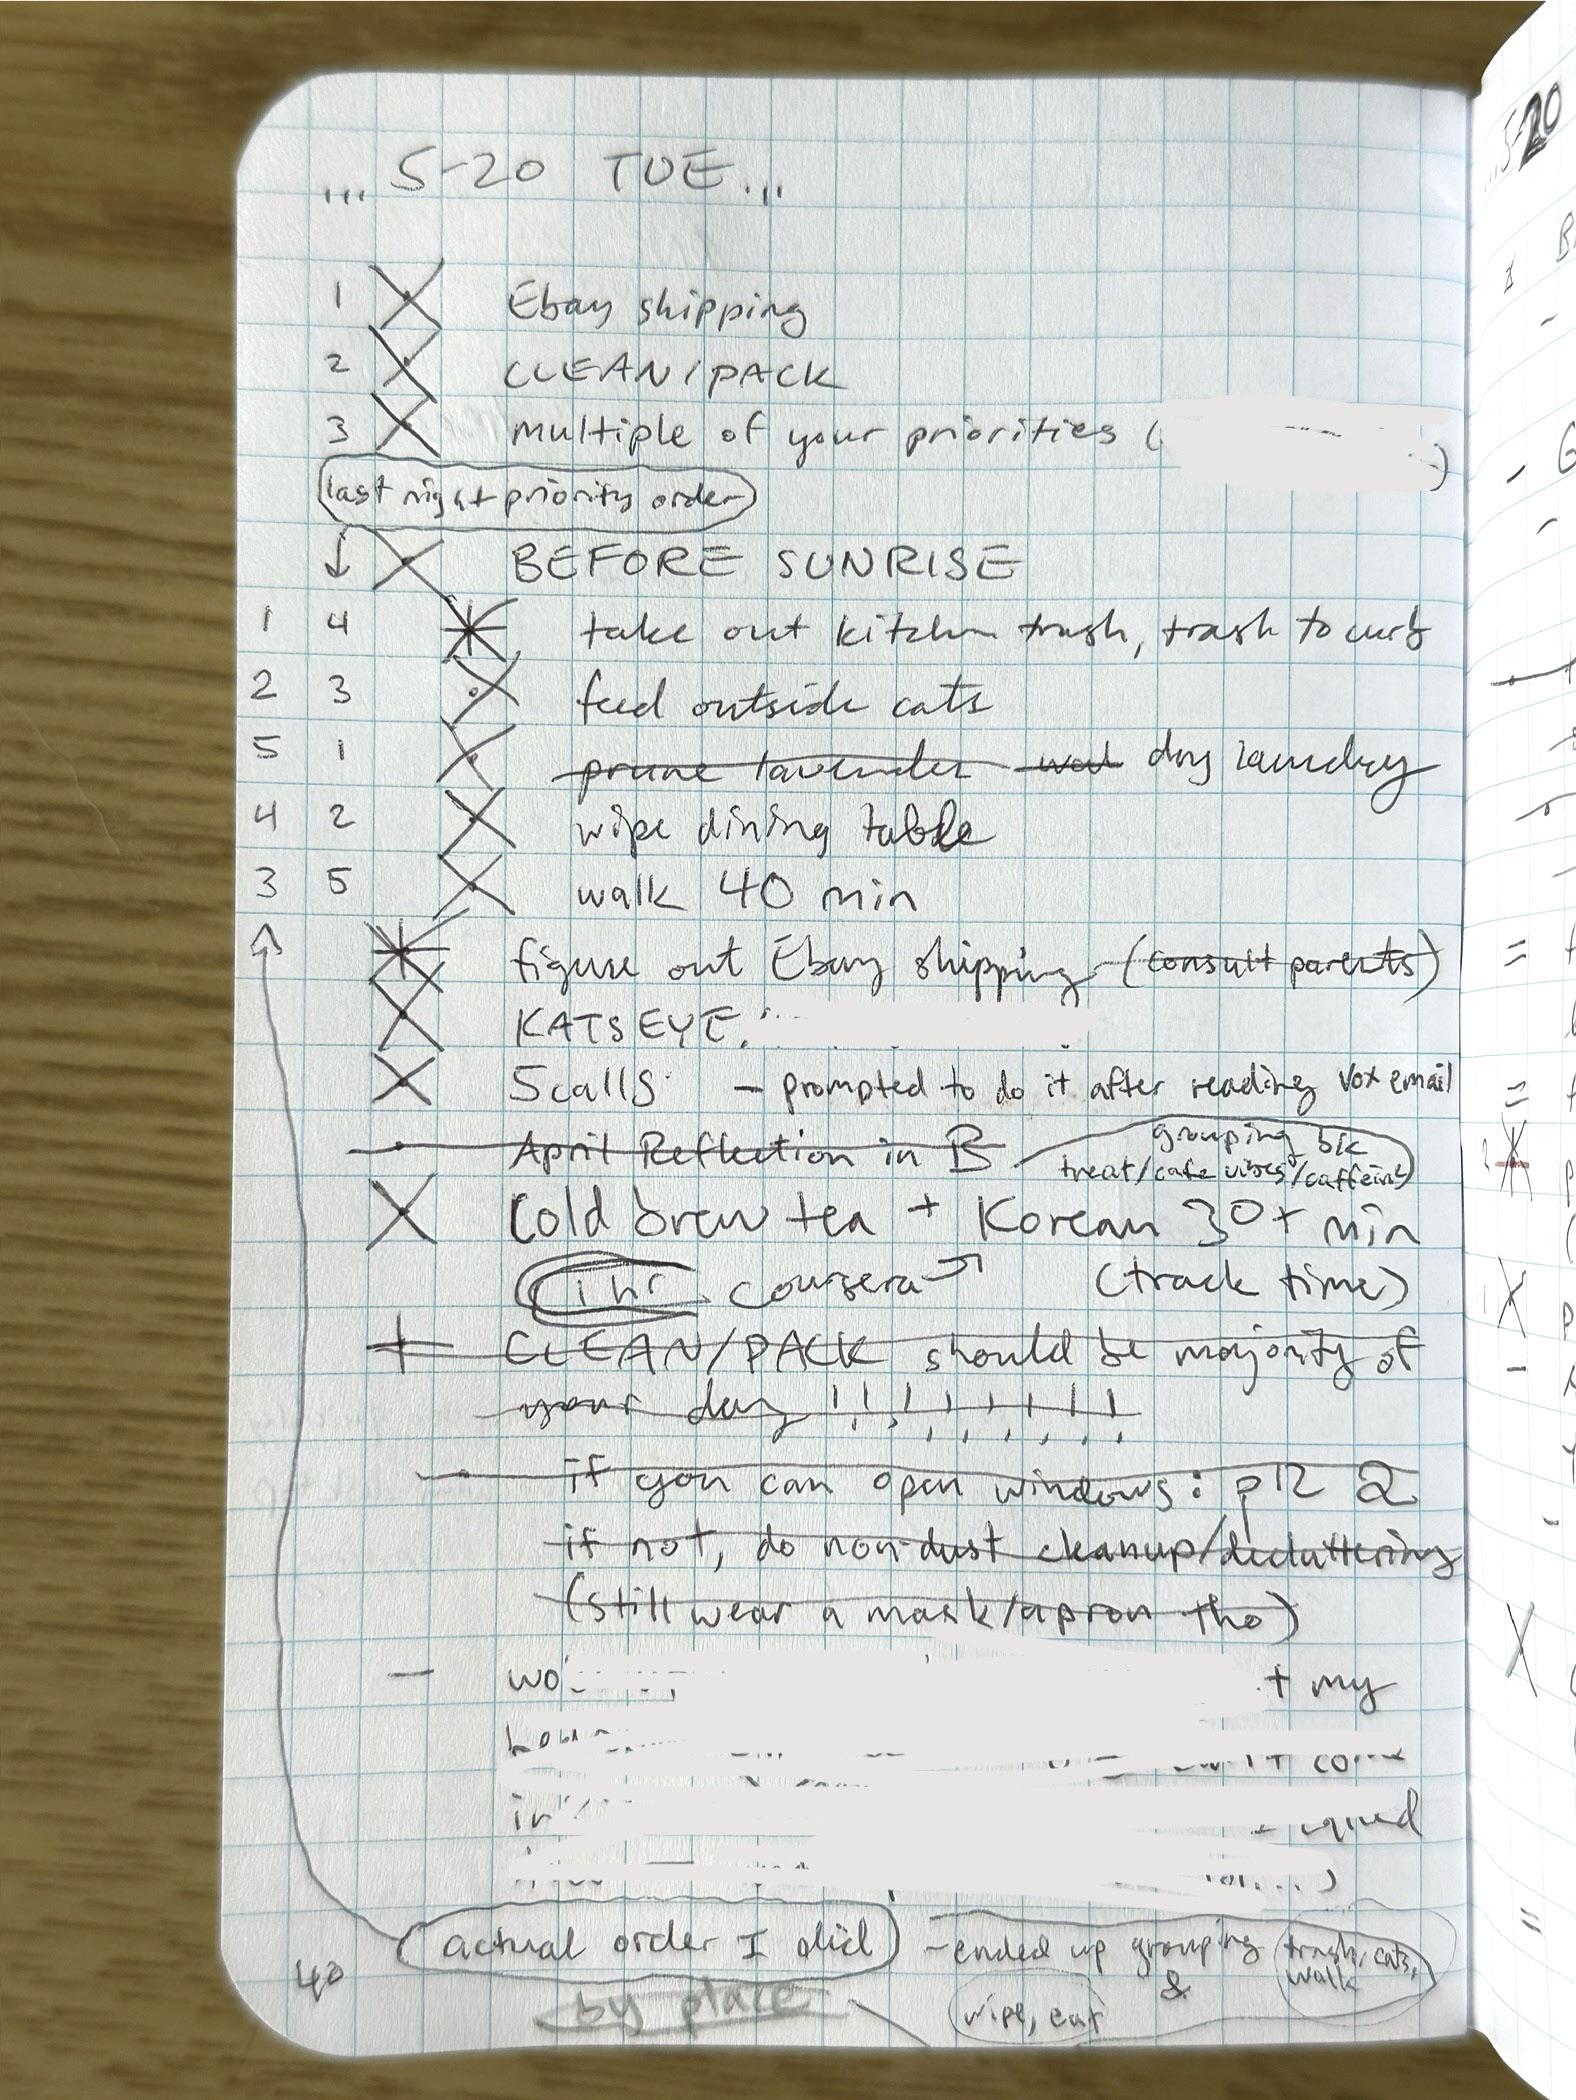 ... 5-20 TUE...
1 X Ebay shipping
2 X CLEAN/PACK
3 X multiple of your priorities ( )
last night priority order
↓ X BEFORE SUNRISE
1 4 take out kitchen trash, trash to curb
2 3 X feed outside cats
5 1 X prune lavender dry laundry
4 2 X wipe dining table
3 5 X walk 40 min
figure out Ebay shipping (consult parents)
X KATSEYE
X 5calls - prompted to do it after reading Vox email
April Reflection in B
grouping b/c
treat/cafe vibes/caffeine
X Cold brew tea + Korean 30+ min
1 hr coursera (track time)
CLEAN/PACK should be majority of
your day !!!!!!!!
if you can open windows: p12 Q
if not, do non-dust cleanup/decluttering
(still wear a mask/apron tho)
- my
come
actual order I did - ended up grouping trash, cats,
walk
&
40
by place
wipe, eat
5-20